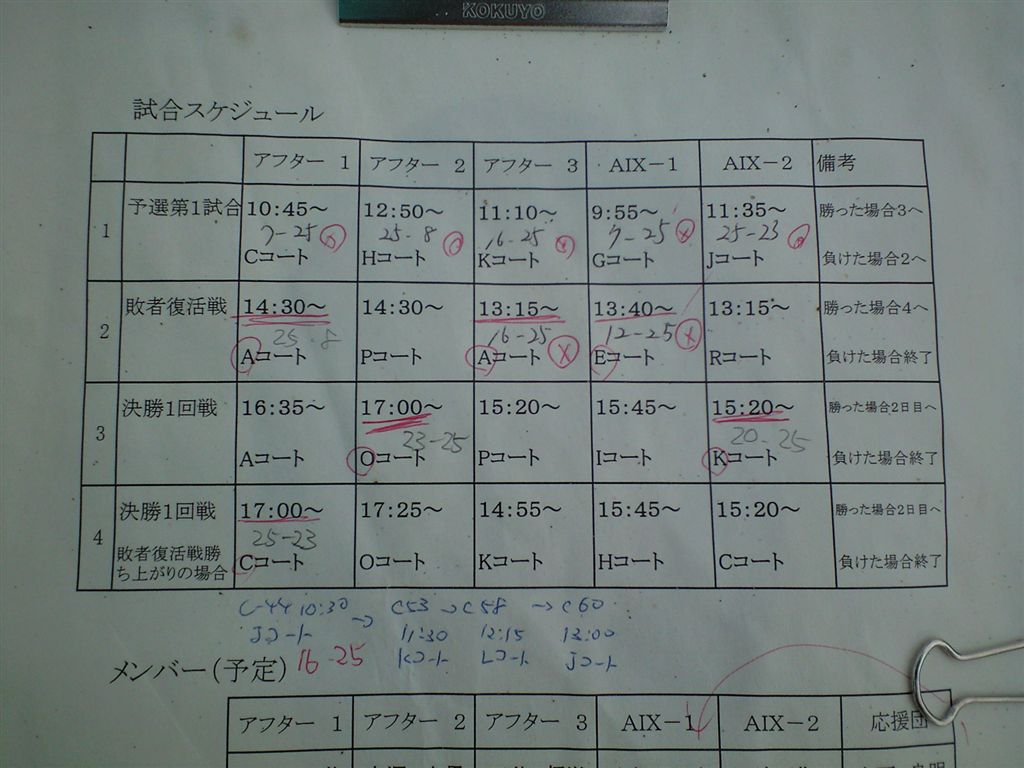 KOKUYO
試合スケジュール
アフター 1 アフター 2 アフター 3 AIX-1 AIX-2 備考
1 予選第1試合 10:45~ 12:50~ 11:10~ 9:55~ 11:35~ 勝った場合3へ
7-25 25-8 16-25 7-25 25-23
Cコート Hコート Kコート Gコート Jコート 負けた場合2へ
2 敗者復活戦 14:30~ 14:30~ 13:15~ 13:40~ 13:15~ 勝った場合4へ
25-8 16-25 12-25
Aコート Pコート Aコート Eコート Rコート 負けた場合終了
3 決勝1回戦 16:35~ 17:00~ 15:20~ 15:45~ 15:20~ 勝った場合2日目へ
23-25 20-25
Aコート Oコート Pコート Iコート Kコート 負けた場合終了
4 決勝1回戦 17:00~ 17:25~ 14:55~ 15:45~ 15:20~ 勝った場合2日目へ
25-23
敗者復活戦勝 Cコート Oコート Kコート Hコート Cコート 負けた場合終了
ち上がりの場合
C-44 10:30 → C53 → C58 → C60
Jコート 11:30 12:15 13:00
Kコート Lコート Jコート
メンバー(予定) 16-25
アフター 1 アフター 2 アフター 3 AIX-1 AIX-2 応援団